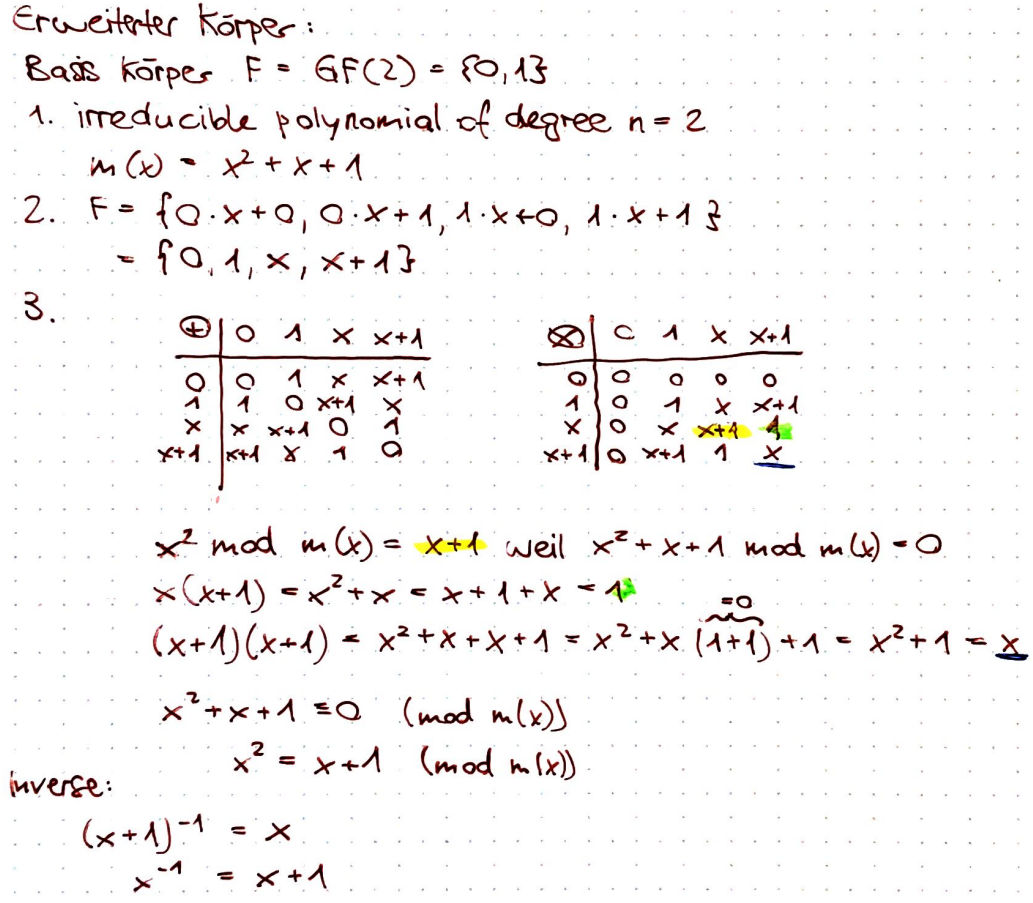 Erweiterter Körper:
Basis Körper F = GF(2) = {0,1}
1. irreducible polynomial of degree n = 2
m(x) = x² + x + 1
2. F = {0·x+0, 0·x+1, 1·x+0, 1·x+1}
= {0, 1, x, x+1}
3.
⊕ | 0 1 x x+1
0 | 0 1 x x+1
1 | 1 0 x+1 x
x | x x+1 0 1
x+1 | x+1 x 1 0
⊗ | 0 1 x x+1
0 | 0 0 0 0
1 | 0 1 x x+1
x | 0 x x+1 1
x+1 | 0 x+1 1 x
x² mod m(x) = x+1 weil x²+x+1 mod m(x) = 0
x(x+1) = x²+x = x+1+x = 1
=0
(x+1)(x+1) = x²+x+x+1 = x²+x(1+1)+1 = x²+1 = x
x²+x+1 ≡ 0 (mod m(x))
x² = x+1 (mod m(x))
inverse:
(x+1)⁻¹ = x
x⁻¹ = x+1